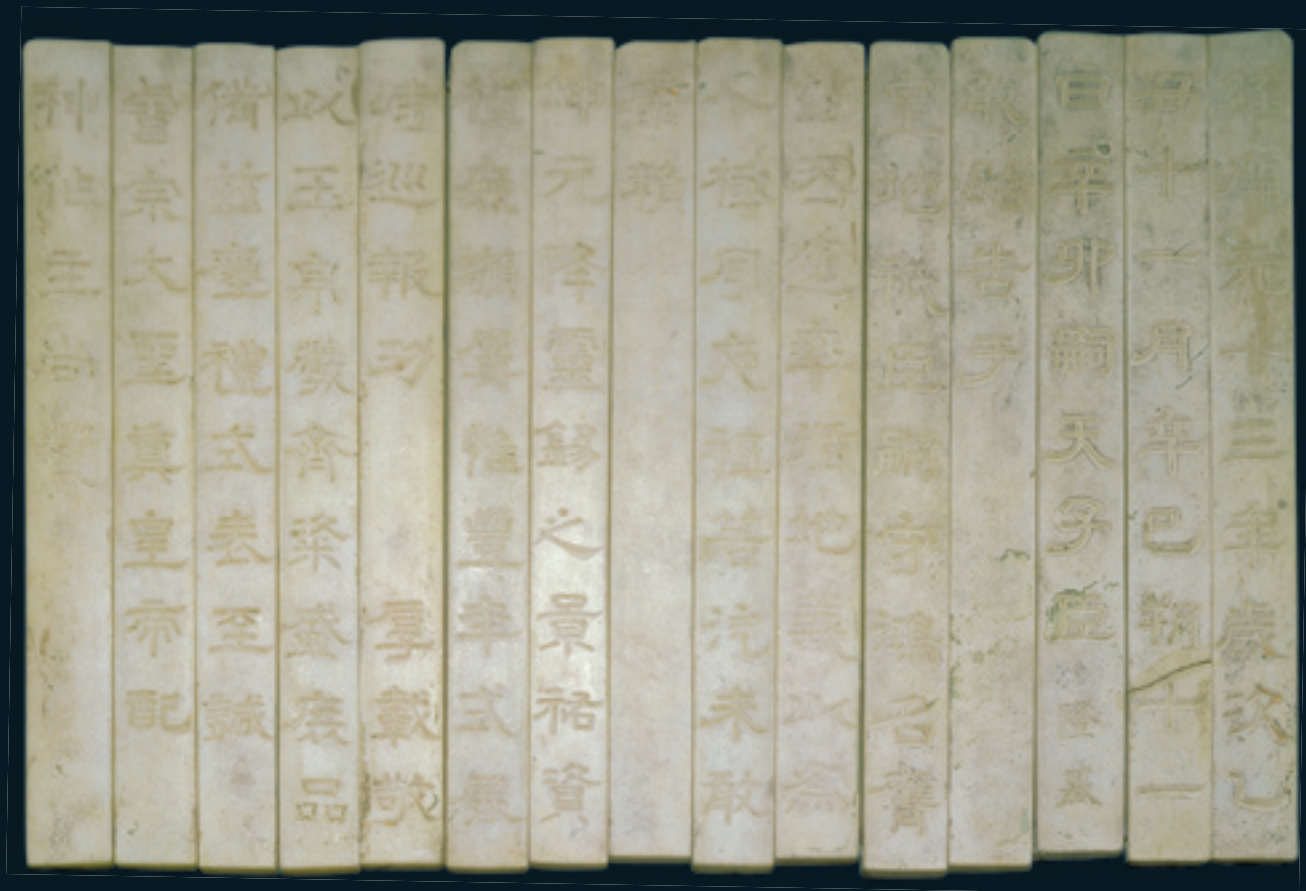 惟開元十三年歲次乙
丑十一月辛巳朔十一
日辛卯嗣天子臣隆基
敢昭告于
皇地祇臣嗣守鴻名膺
茲丕運率循地義以為
人極夙夜祗若汔未敢
康賴
坤元降靈錫之景祐資
植庶類屢惟豐年式展
時巡報功 厚載敬
以玉帛犧齊粢盛庶品
備茲瘞禮式表至誠
睿宗大聖真皇帝配
神作主尚饗